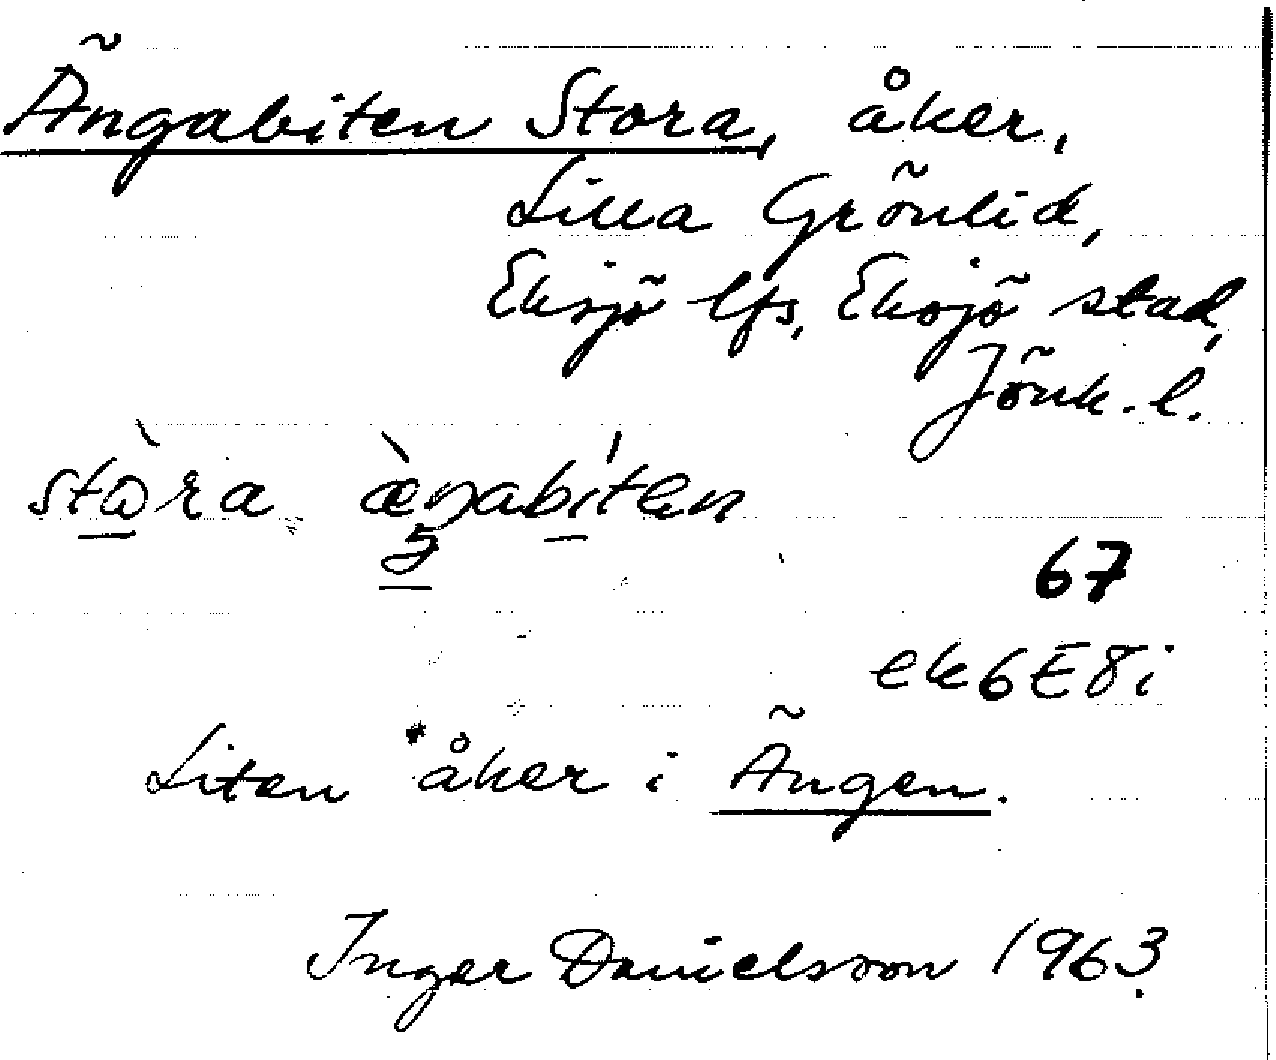 Ängabiten Stora, åker,
Lilla Grönlid,
Eksjö lfs, Eksjö stad,
Jönk. l.
stòra æ̀ŋabíten
67
ek 6E8i
Liten åker i Ängen.
Inger Danielsson 1963.